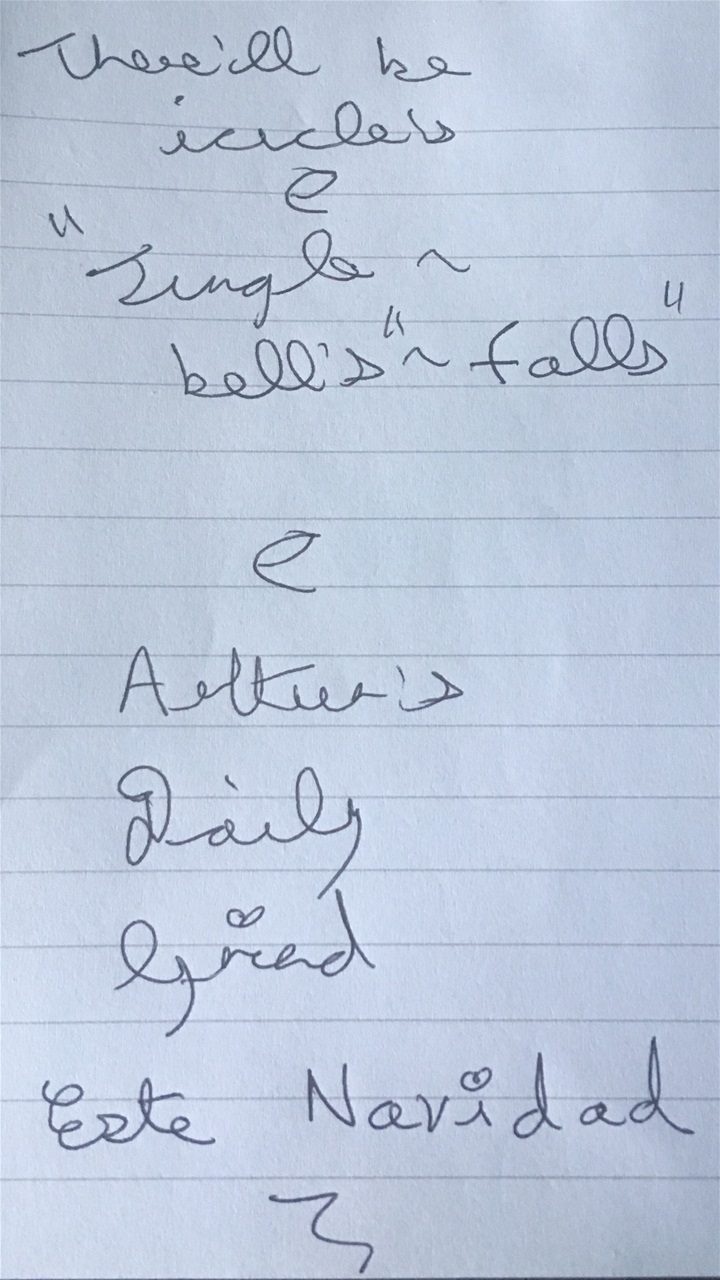 There'll be
icicle's
e
"Jingle ~
bell's" ~ falls"
e
Arthur's
Daily
Grind
Este Navidad